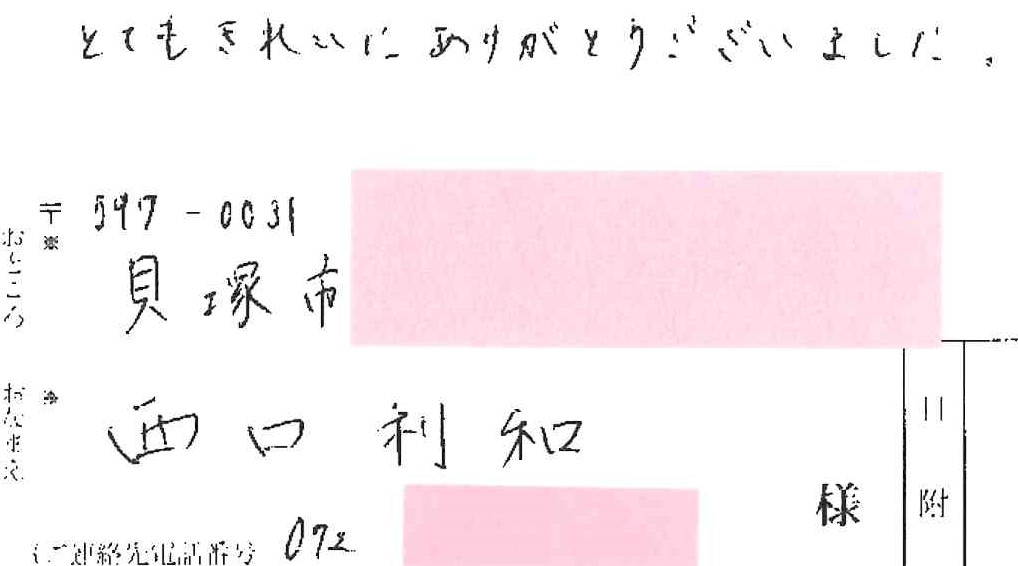 とてもきれいにありがとうございました。
〒597-0031
※
おところ
貝塚市
おなまえ
※
西口利和
様
日附
(ご連絡先電話番号 072